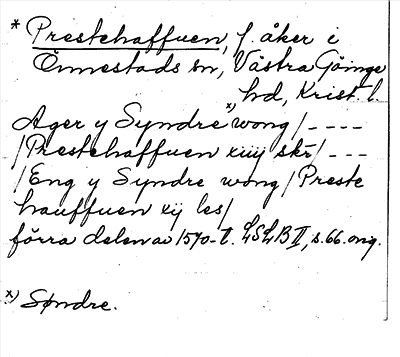 * Prestehaffuen, f. åker i
Önnestads sn, Västra Göinge
hd, Krist. l.
Ager y Syndre x) wong / ----
/ Prestehaffuen xiiij skr / ---
/ Eng y Syndre wong / Preste
hauffuen xij les /
förra delen av 1570-t. LSLB II, s. 66. orig.
x) Søndre.